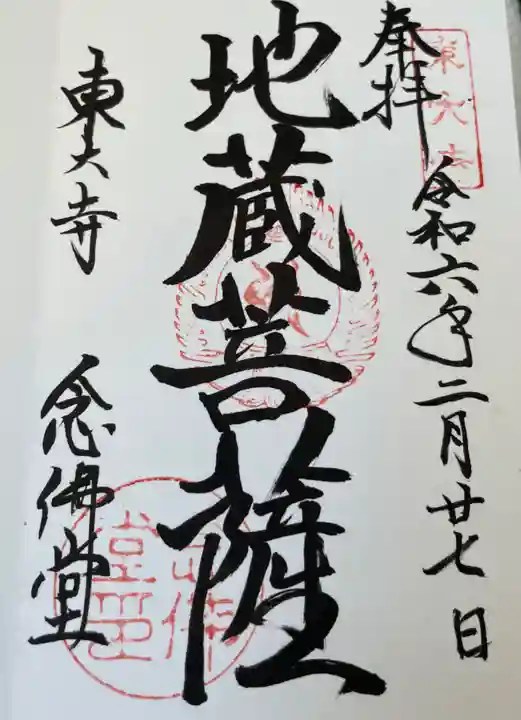 奉拝
令和六年二月廿七日
東大寺
地蔵菩薩
東大寺 念佛堂